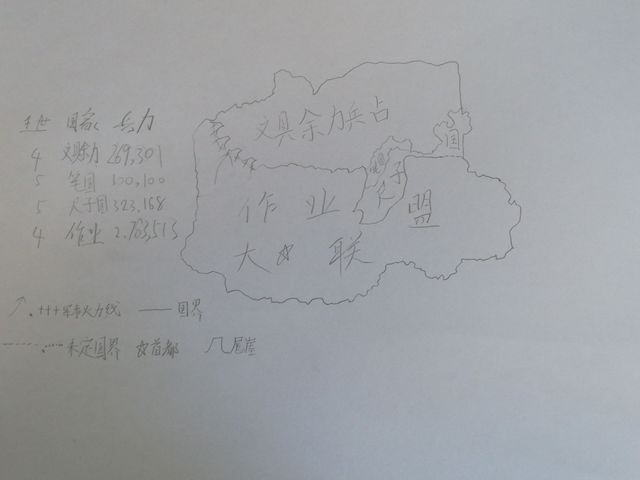 国家 兵力
4 文具余力 269,301
5 笔国 100,100
5 尺子国 323,168
4 作业 2.763,513
文具余力兵占
国
尺子
作业
盟
大 联
国界
未定国界 首都